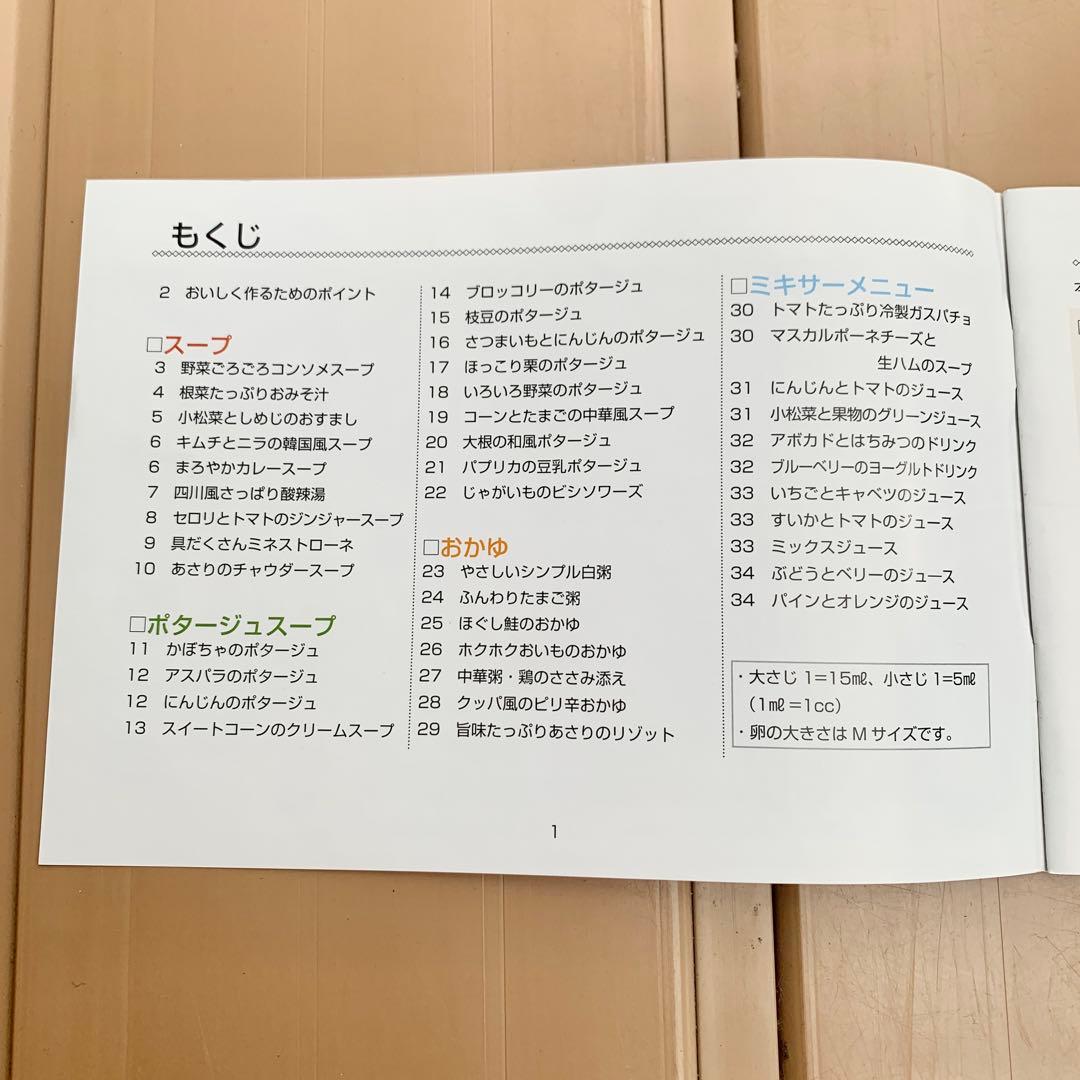 もくじ
2 おいしく作るためのポイント
□スープ
3 野菜ごろごろコンソメスープ
4 根菜たっぷりおみそ汁
5 小松菜としめじのおすまし
6 キムチとニラの韓国風スープ
6 まろやかカレースープ
7 四川風さっぱり酸辣湯
8 セロリとトマトのジンジャースープ
9 具だくさんミネストローネ
10 あさりのチャウダースープ
□ポタージュスープ
11 かぼちゃのポタージュ
12 アスパラのポタージュ
12 にんじんのポタージュ
13 スイートコーンのクリームスープ
14 ブロッコリーのポタージュ
15 枝豆のポタージュ
16 さつまいもとにんじんのポタージュ
17 ほっこり栗のポタージュ
18 いろいろ野菜のポタージュ
19 コーンとたまごの中華風スープ
20 大根の和風ポタージュ
21 パプリカの豆乳ポタージュ
22 じゃがいものビシソワーズ
□おかゆ
23 やさしいシンプル白粥
24 ふんわりたまご粥
25 ほぐし鮭のおかゆ
26 ホクホクおいものおかゆ
27 中華粥・鶏のささみ添え
28 クッパ風のピリ辛おかゆ
29 旨味たっぷりあさりのリゾット
□ミキサーメニュー
30 トマトたっぷり冷製ガスパチョ
30 マスカルポーネチーズと
生ハムのスープ
31 にんじんとトマトのジュース
31 小松菜と果物のグリーンジュース
32 アボカドとはちみつのドリンク
32 ブルーベリーのヨーグルトドリンク
33 いちごとキャベツのジュース
33 すいかとトマトのジュース
33 ミックスジュース
34 ぶどうとベリーのジュース
34 パインとオレンジのジュース
・大さじ 1=15㎖、小さじ 1=5㎖
（1㎖ =1cc）
・卵の大きさは M サイズです。
1